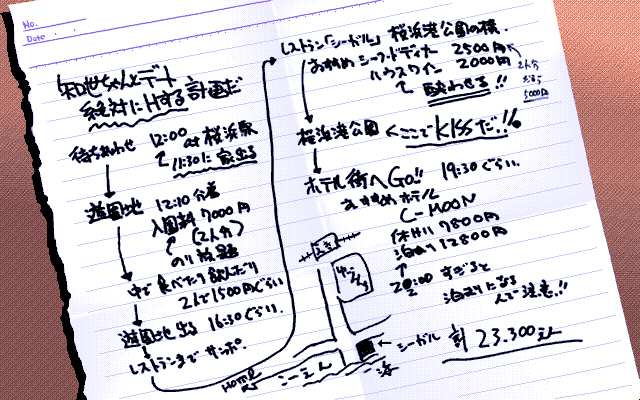 No.
Date
知世ちゃんとデート
絶対にHする計画だ
待ちあわせ 12:00 at 桜浜駅
11:30に家出る
遊園地 12:10分着
入園料 7000円
(2人分)
のり放題
中で食べたり飲んだり
2人で1500円ぐらい
遊園地出る 16:30ぐらい.
レストランまでサンポ.
レストラン「シーガル」桜浜港公園の横.
おすすめシーフードディナー 2500円
ハウスワイン 2000円
2人分
だから
5000円
酔わせる!!
桜浜港公園 ここでKISSだ!!
ホテル街へGo!! 19:30ぐらい.
おすすめホテル
C-MOON
休けい 7800円
泊まり 12800円
22:00すぎると
泊まりになる
んで注意!!
えき
ゆうえんち
シーガル
計 23.300えん
HOME
こーえん
海